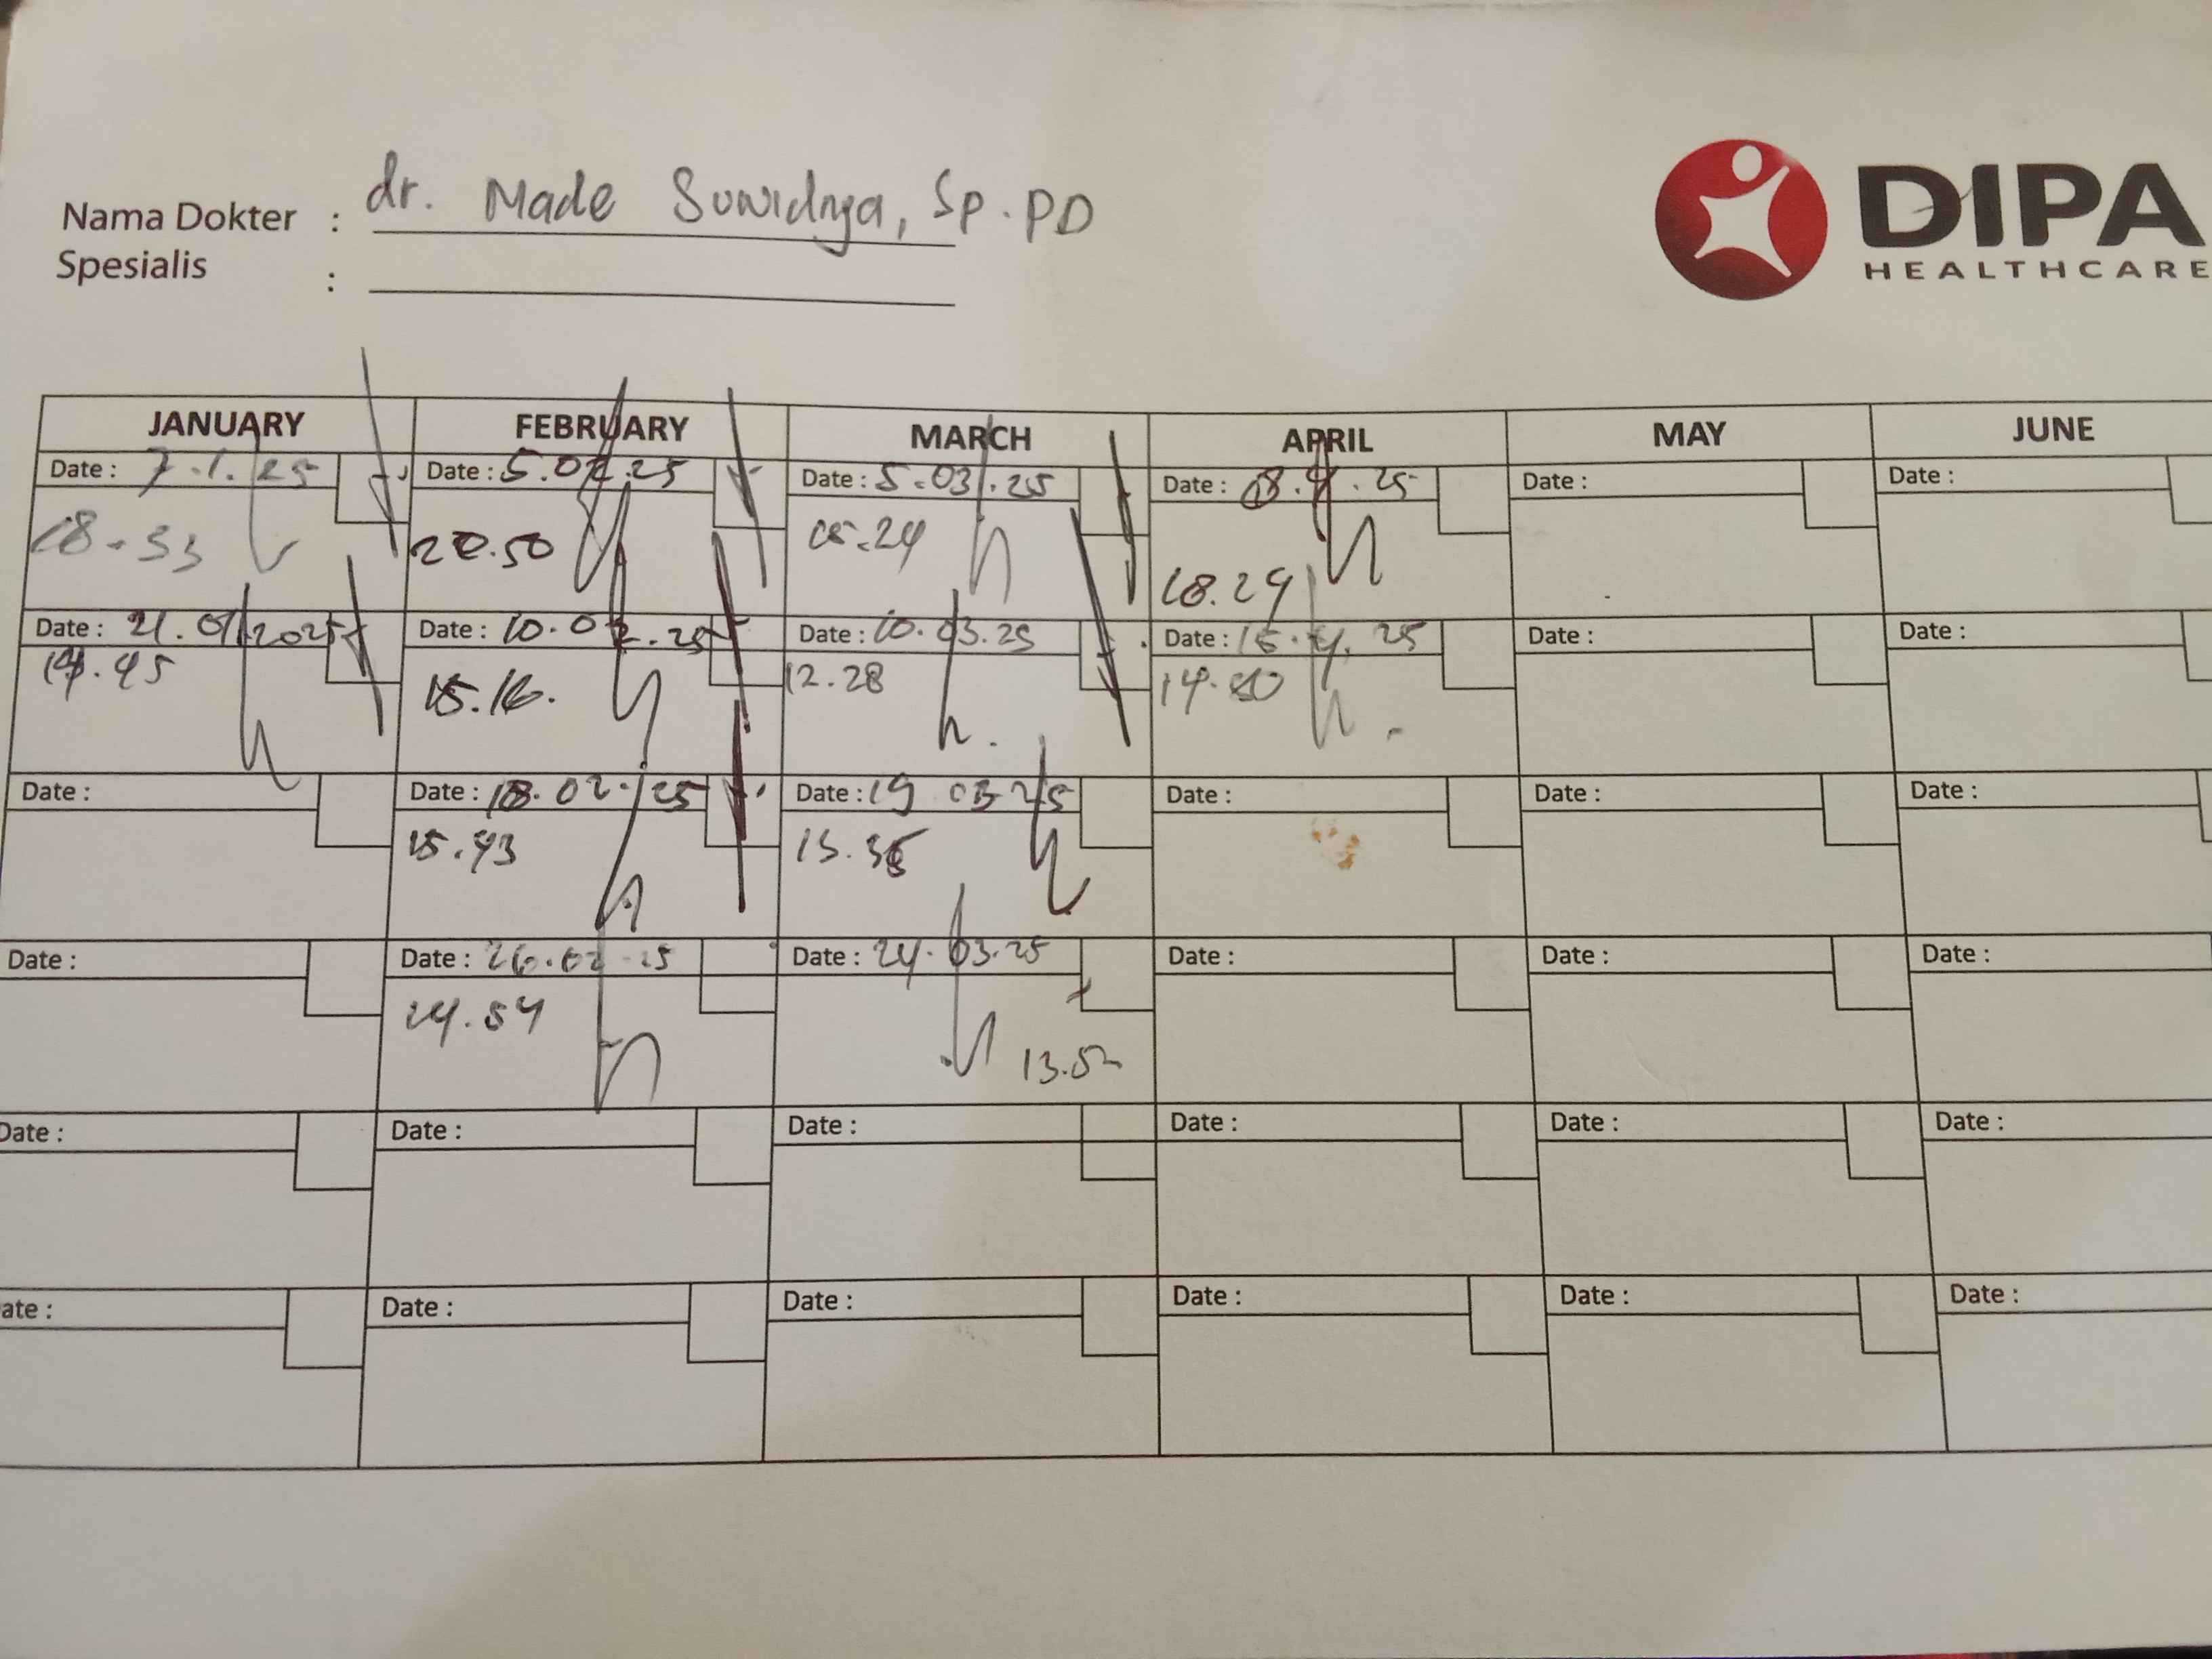 Nama Dokter : dr. Made Suwidnya, Sp.PD
Spesialis :
DIPA
HEALTHCARE
JANUARY FEBRUARY MARCH APRIL MAY JUNE
Date : 7.1.25 Date : 5.02.25 Date : 5.03.25 Date : 08.4.25 Date : Date :
18.33 20.50 15.24
18.29
Date : 21.01.2025 Date : 10.02.25 Date : 10.03.25 Date : 15.4.25 Date : Date :
14.45 15.16. 12.28 14.40
Date : Date : 18.02.25 Date : 19 03 25 Date : Date : Date :
15.43 15.36
Date : Date : 26.02.25 Date : 24.03.25 Date : Date : Date :
14.54
13.5
Date : Date : Date : Date : Date : Date :
ate : Date : Date : Date : Date : Date :